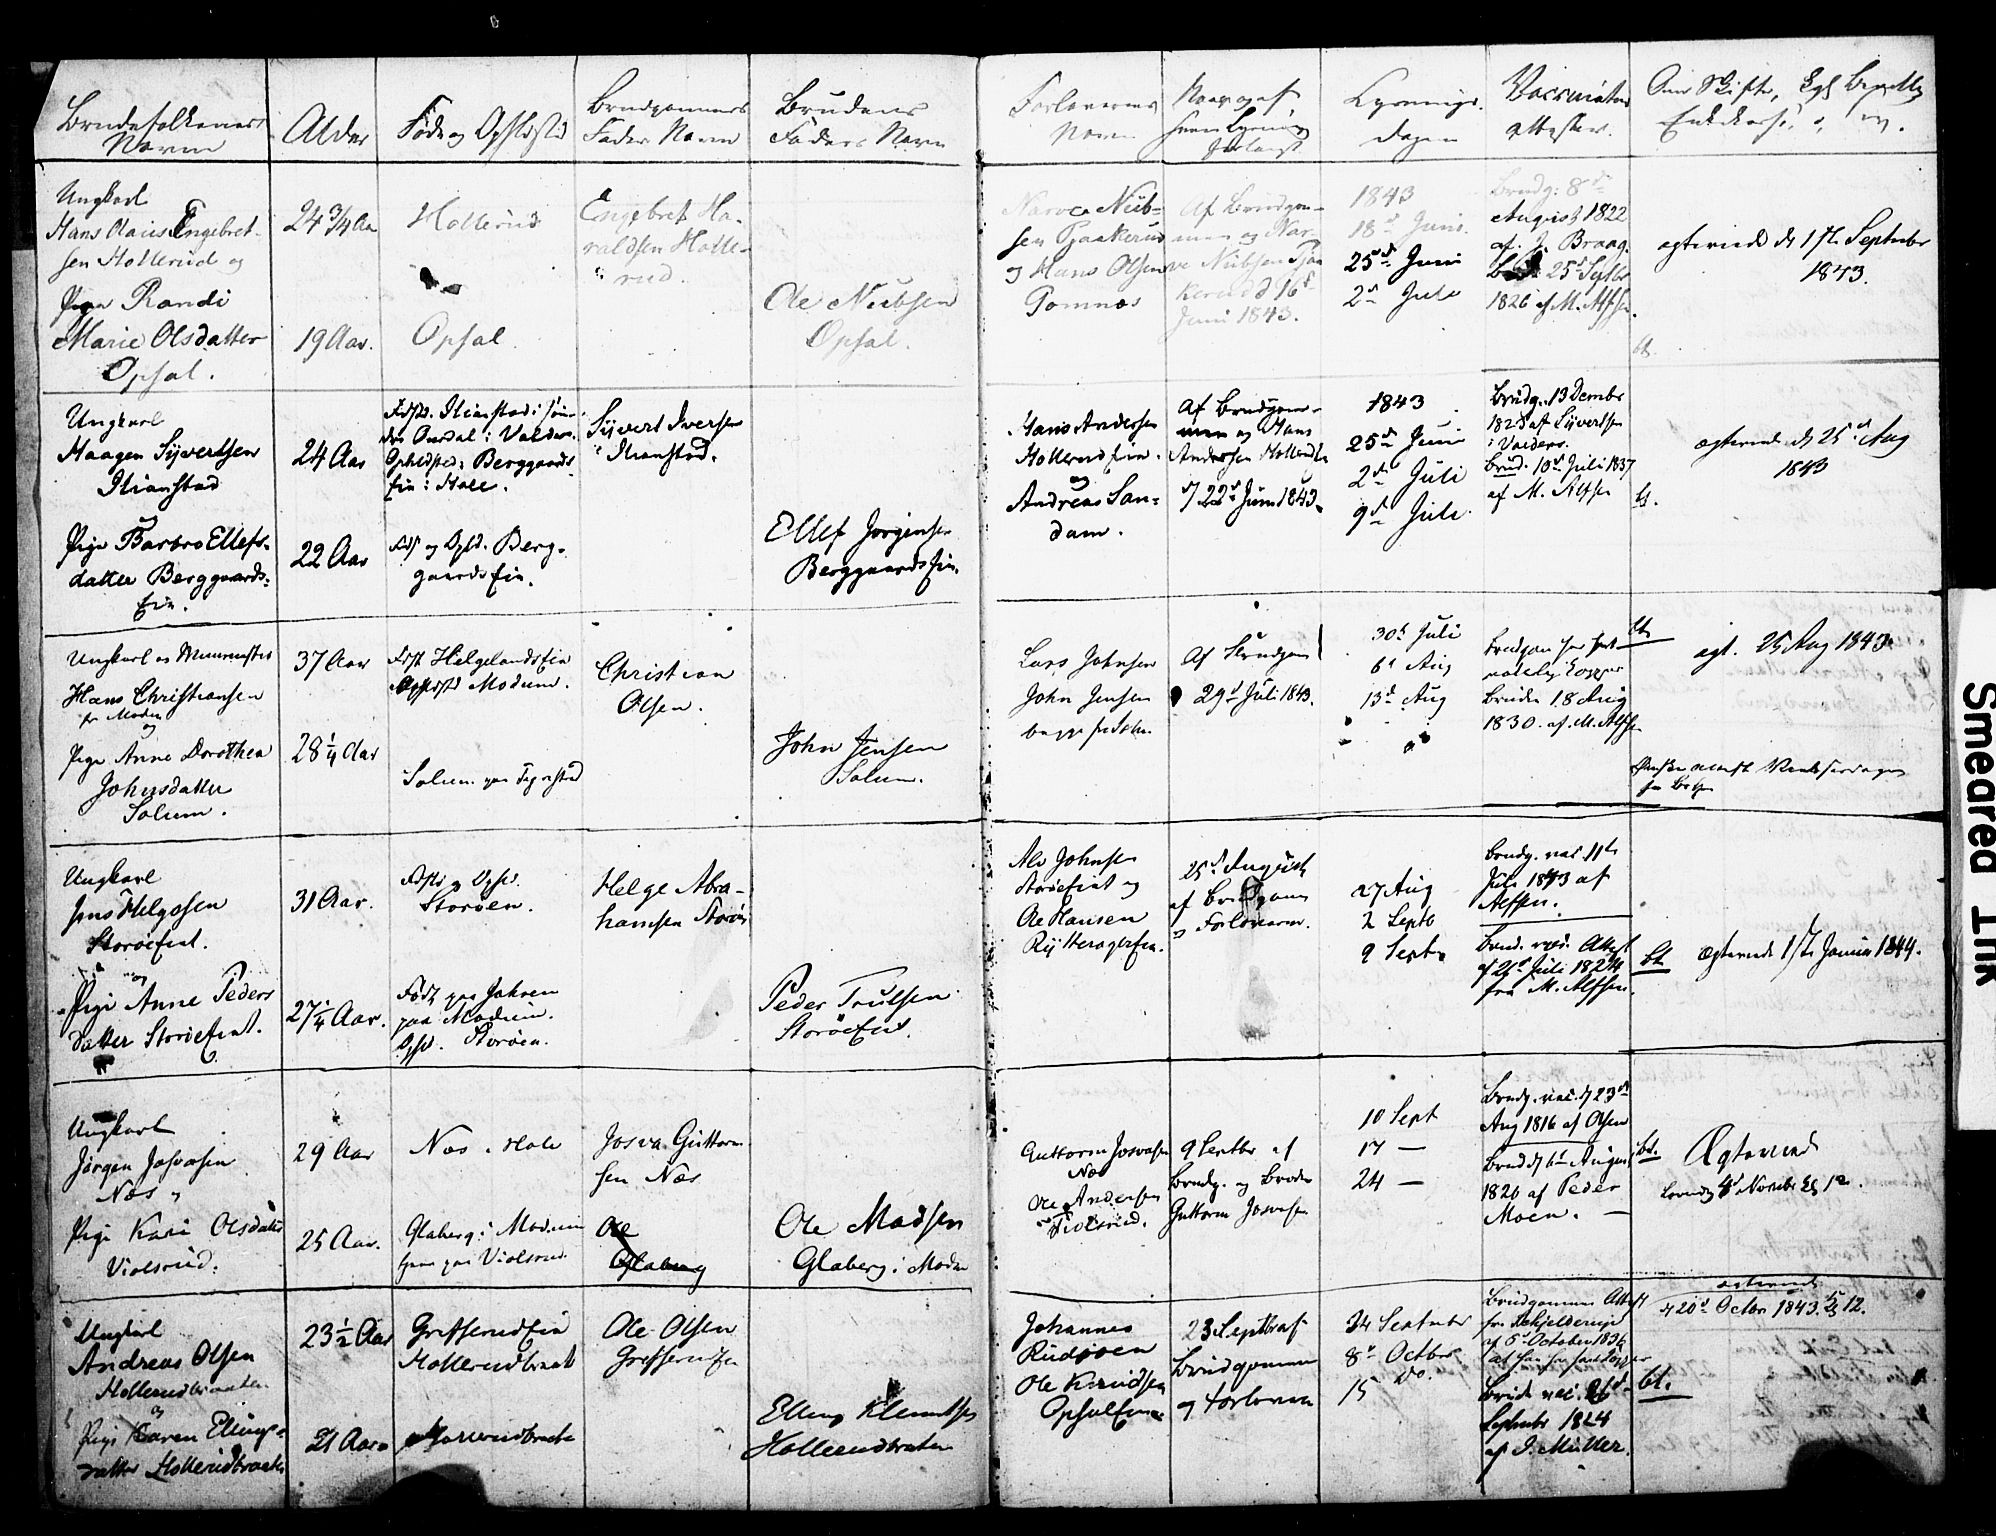 Brudefolkenes
Navne
Alder
Føde og Opholdsted
Brudgommens
Fader Navn
Brudens
Faders Navn
Forlovernes
Navne
Naar og af
hvem Lysning
forlangt
Lysnings
Dagen
Vaccinations
Attester.
Om Skifte,
Ungkarl
Hans Olaus Engebret-
sen Hollerud og
Pige Randi
Marie Olsdatter
Opsal.
24 3/4 Aar
19 Aar.
Hollerud
Opsal
Engebret Ha-
raldsen Holle-
rud.
Ole Nubsen
Opsal.
Narve Nub-
sen Tjaakerud
og Hans Olsen
Gomnæs
Af Brudgom-
men og Nar-
ve Nubsen Tjaa
kerud d 16d
Juni 1843.
1843
18d Juni.
25d Juni
2d Juli
Brudg. 8d
August 1822
af J. Braag.
25d Septbr
1826 af M. Alfsen.
bt.
ægteviede d 1ste September
1843.
Ungkarl
Haagen Syvertsen
Ilianstad
og
Pige Barbro Ellefs-
datter Berggaards-
Eie.
24 Aar
22 Aar
Fødst. Ilianstad i søn-
dre Aurdal i Valders.
Opholdsted: Berggaards
Eie i Hole.
Føds og Ophd. Berg-
gaards Eie.
Syvert Iversen
Ilianstad.
Ellef Jørgensen
Berggaards Eie.
Hans Andersen
Hollerud Eie.
og
Andreas San-
dam.
Af Brudgom-
men og Hans
Andersen Hollerud
d 22d Juni 1843.
1843
25d Juni
2d Juli
9d Juli
Brudg. 13 Dember
1823 af Syvertsen
i Valders.
Brud. 10d Juli 1837
af M. Alfsen
bt.
ægteviede d 25d Aug
1843
Ungkarl og Muurmester
Hans Christiansen
fr Modum
og
Pige Anne Dorothea
Johnsdatter
Solum.
37 Aar
28 1/4 Aar
Fødst Helgelands Eie
Ophdsted Modum.
Solum paa Tyristrand
Christian
Olsen.
John Jensen
Solum.
Lars Johnsen
John Jensen
Af Brudgom
29d Juli 1843.
30d Juli
6d Aug
13d Aug
Brudgom har havt
naturlig Kopper
Bruden 18 Aug
1830. af M. Alfsen
bt.
ægt. 25 Aug 1843
Ungkarl
Jens Helgesen
Storøeient.
og
Pige Anne Peders
datter Storøeient.
31 Aar.
27 1/4 Aar.
Fødste og Ophd.
Storøen.
Født paa Jahren
paa Modum.
Ophd. Storøen.
Helge Abra-
hamsen Storøen
Peder Trulsen
Storøeiet.
Alv Johnsen
Storøeient og
Ole Hansen
Rytteragereie.
25d August
af Brudgom
og Forloverne.
27 Aug
2 Septb
9 Septr
Brudg. vac. 11te
Juli 1843 af
Alfsen.
Brud. vac. Attest
af 21d Juli 1824
fra M. Alfsen.
bt.
Ægteviede 1ste Januar 1844.
Ungkarl
Jørgen Josvasen
Næs
Pige Kari Olsdatter
Violsrud.
29 Aar
25 Aar.
Næs i Hole
Glaberg i Modum
tjener paa Violsrud
Josva Guttorm
sen Næs
Ole
Glaberg
Ole Madsen
Glaberg i Modum
Guttorm Josvasen
Næs
Ole Andersen
Violsrud.
9 Septbr af
Brudg. og Broder
Guttorm Josvasen
10 Sept
17 —
24 —
Brudg. vac. d 23d
Aug 1816 af Olsen
Brud d 6t August
1820 af Peder
Moen. —
bt.
Ægteviede
Løverdag 4d Novembr Kl 12.
Ungkarl
Andreas Olsen
Hollerudbraaten
og
Pige Karen Ellings-
datter Hollerudbraaten
23 1/2 Aar
21 Aar
Grefserud Eie
Hollerudbraat
Hollerudbraate
Ole Olsen
Grefserud Eie
Elling Klemetsen
Hollerudbraaten
Johannes
Rudsøen
Ole Knudsen
Opsal Eie
23 Septbr af
Brudgommen
og Forloverne
24 September
8d Octbr
15 Do.
Brudgommens Attest
fra Schjelderup
af 6d October 1836
at han har havt Kopper
Brud vac. 26d
Septembr 1824
af I. Müller.
bt.
ægteviede
d 20d Octbr 1843. Kl 12.
Smeared Ink